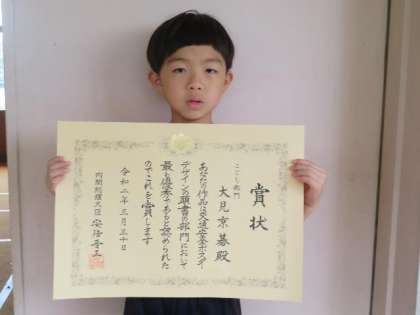 賞状
こども部門
大見京碁殿
あなたの作品は交通安全ポスター
デザインの図書の部門において
最も優秀であると認められた
のでこれを賞します
令和二年三月三十日
内閣総理大臣 安倍晋三